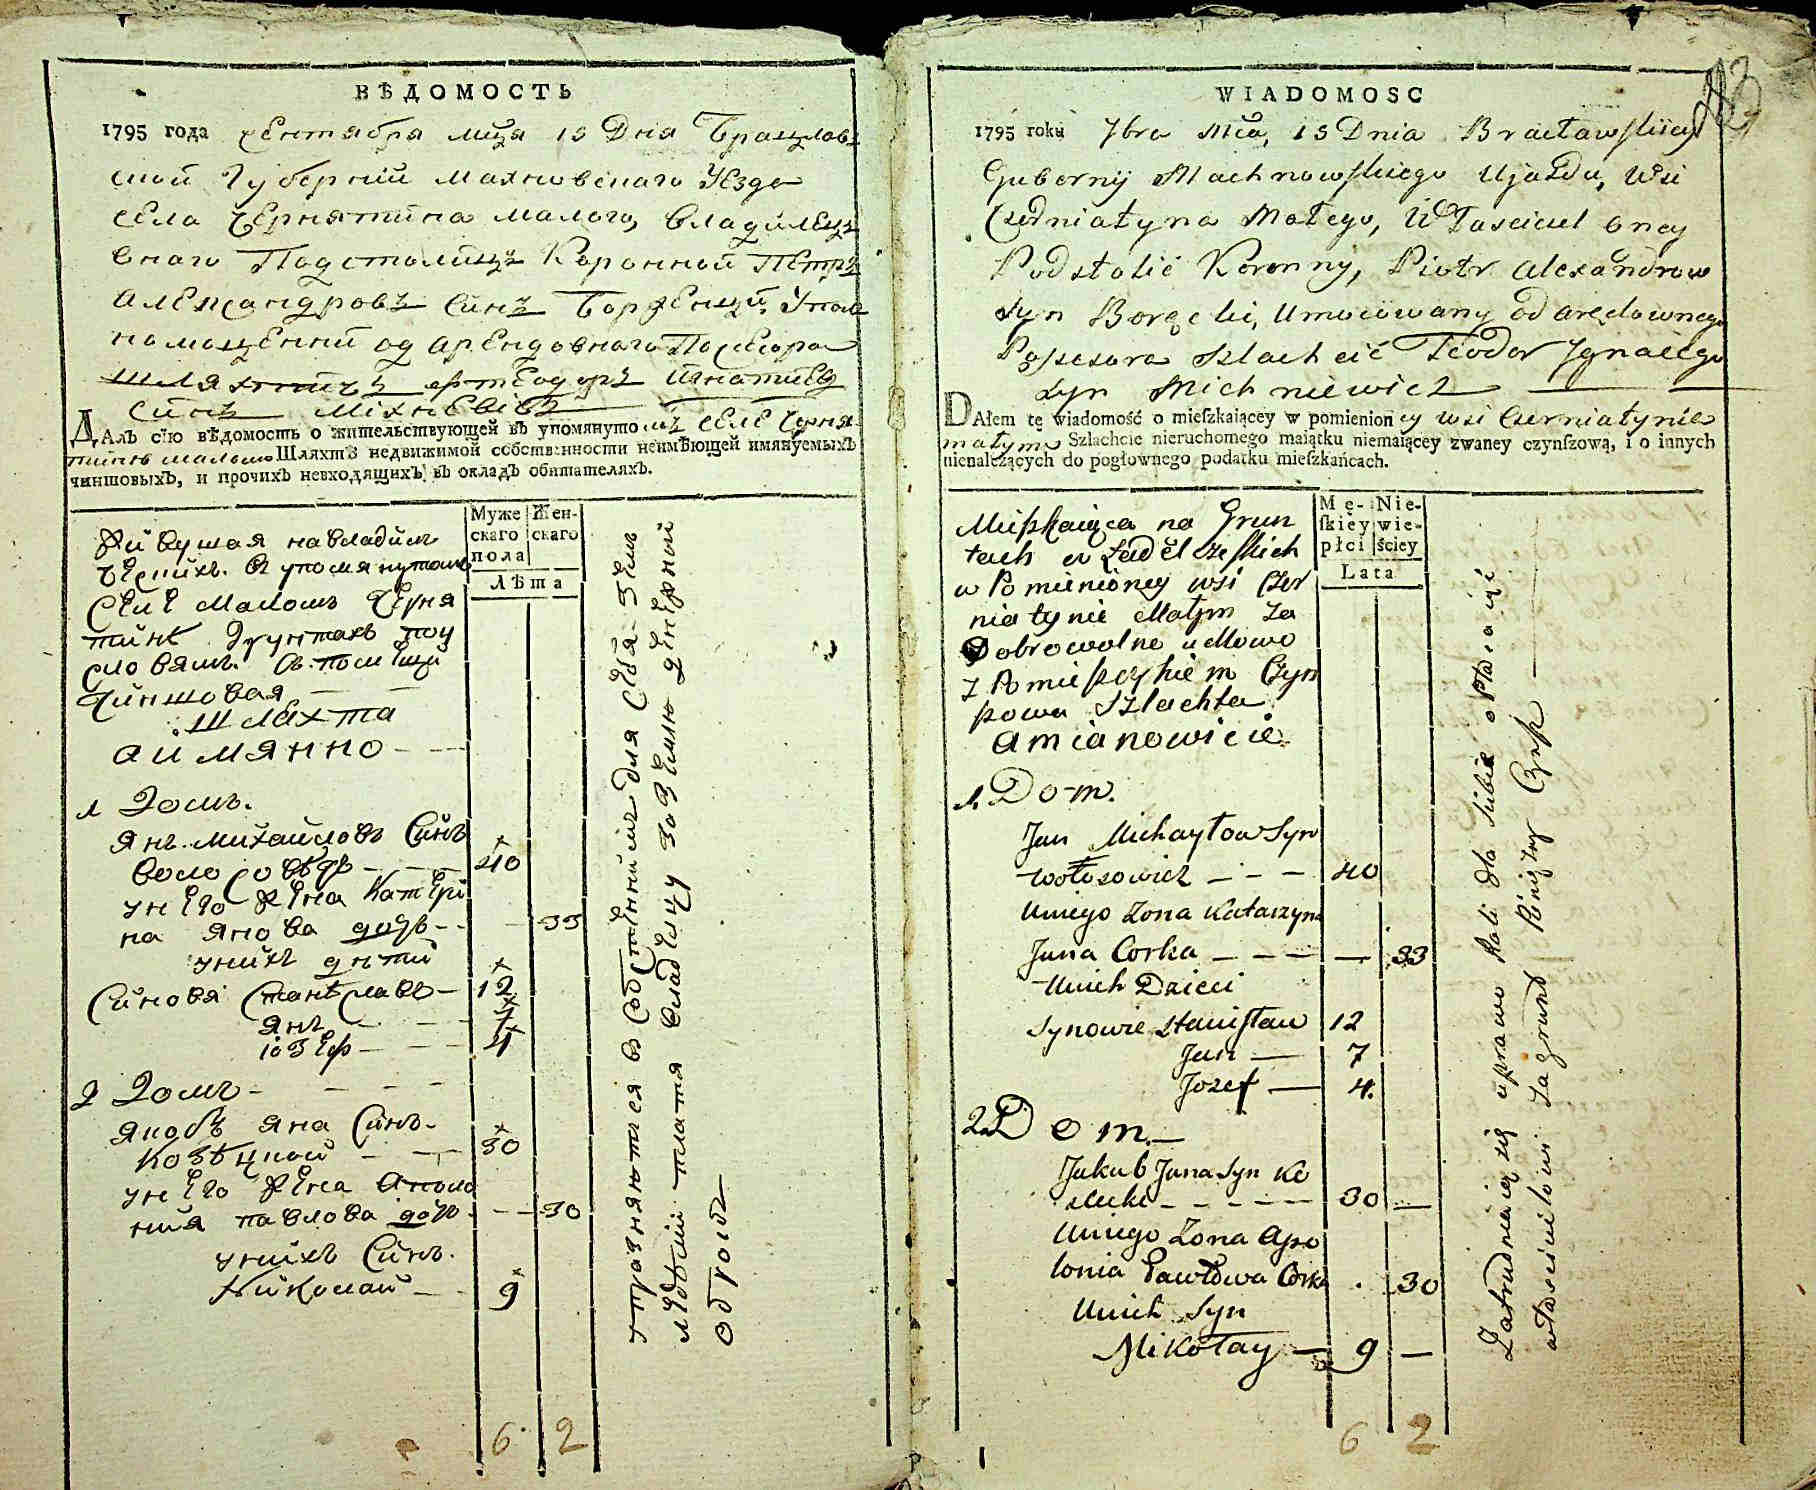 ВѢДОМОСТЬ
1795 года сентября мца 15 Дня Брацлав
ской Губернiи Махновскаго Уезда
села Чернятина малого, владилецъ
онаго Подстолицъ Коронной Петръ
Александровъ Синъ Борженцкiй, Упол
номоценнй од арендовнаго Посесора
шляхтичъ Теодоръ Игнатиевъ
Синъ Мiхневiвъ
ДАлъ сїю вѣдомость о жительствующей въ упомянутомъ селе Черня
тине маломъ Шляхтѣ недвижимой собственности неимѣющей имянуемыхъ
чиншовыхъ, и прочихъ невходящихъ въ окладъ обитателяхъ.
Муже Жен-
скаго скаго
пола
Лѣта
Живущая на владил
ческихъ. В упомянутомъ
Селе Маломъ Черня
тине Грунтахъ по у
словямъ. Съ помещи
Чиншовая
шляхта
аимянно
1 Домъ.
Янъ Михайловъ Синъ
Волосовичъ 40
у него жена Катери
на Янова дочь 33
у нихъ дети
Синовя Станиславъ 12
Янъ 7
iозефъ 4
2 Домъ
Якобъ Яна Синъ
Козецкой 30
у него жена Аполо
ния павлова дочь 30
у нихъ Синъ
Николай 9
6 2
упражняются в собственнимъ для себя хле
платя владелцу за землю денежний
оброкъ
WIADOMOSC
1795 roku 7bra Mca, 15 Dnia Bracławskiey
Gubernij Machnowskiego Ujazdu, wsi
Czerniatyna Małego, Właściciel oney
Podstolic Koronny, Piotr Alexandrow
syn Boręcki, Umocowany od arędownego
Possesora szlachcic Teodor Jgnacego
syn Michniewicz
DAłem tę wiadomość o mieſzkaiącey w pomienioney wsi Czerniatynie
małym Szlachcie nieruchomego maiątku niemaiącey zwaney czynſzową, i o innych
nienależących do pogłownego podatku mieſzkańcach.
Mę- Nie-
ſkiey wie-
płci ściey
Lata
Mieszkaiąca na Grun
tach władelczeskich
w Pomienioney wsi Czer
niatynie Małym za
Dobrowolne umowo
z Pomieszczykiem Czyn
szowa Szlachta
amianowicie
1. Dom.
Jan Michayłow Syn
Wołosowicz 40
Uniego Zona Katarzyna
Jana Corka 33
Unich Dzieci
Synowie Stanisław 12
Jan 7
Jozef 4.
2. Dom.
Jakub Jana Syn Ko
zlecki 30
Uniego Zona Apo
lonia Pawłowa Corka 30
Unich Syn
Mikołay 9
6 2
Zatrudniaią się uprawo Roli dla siebie opłacaiąc
własćicielowi za grunt Pieniężny Czynsz